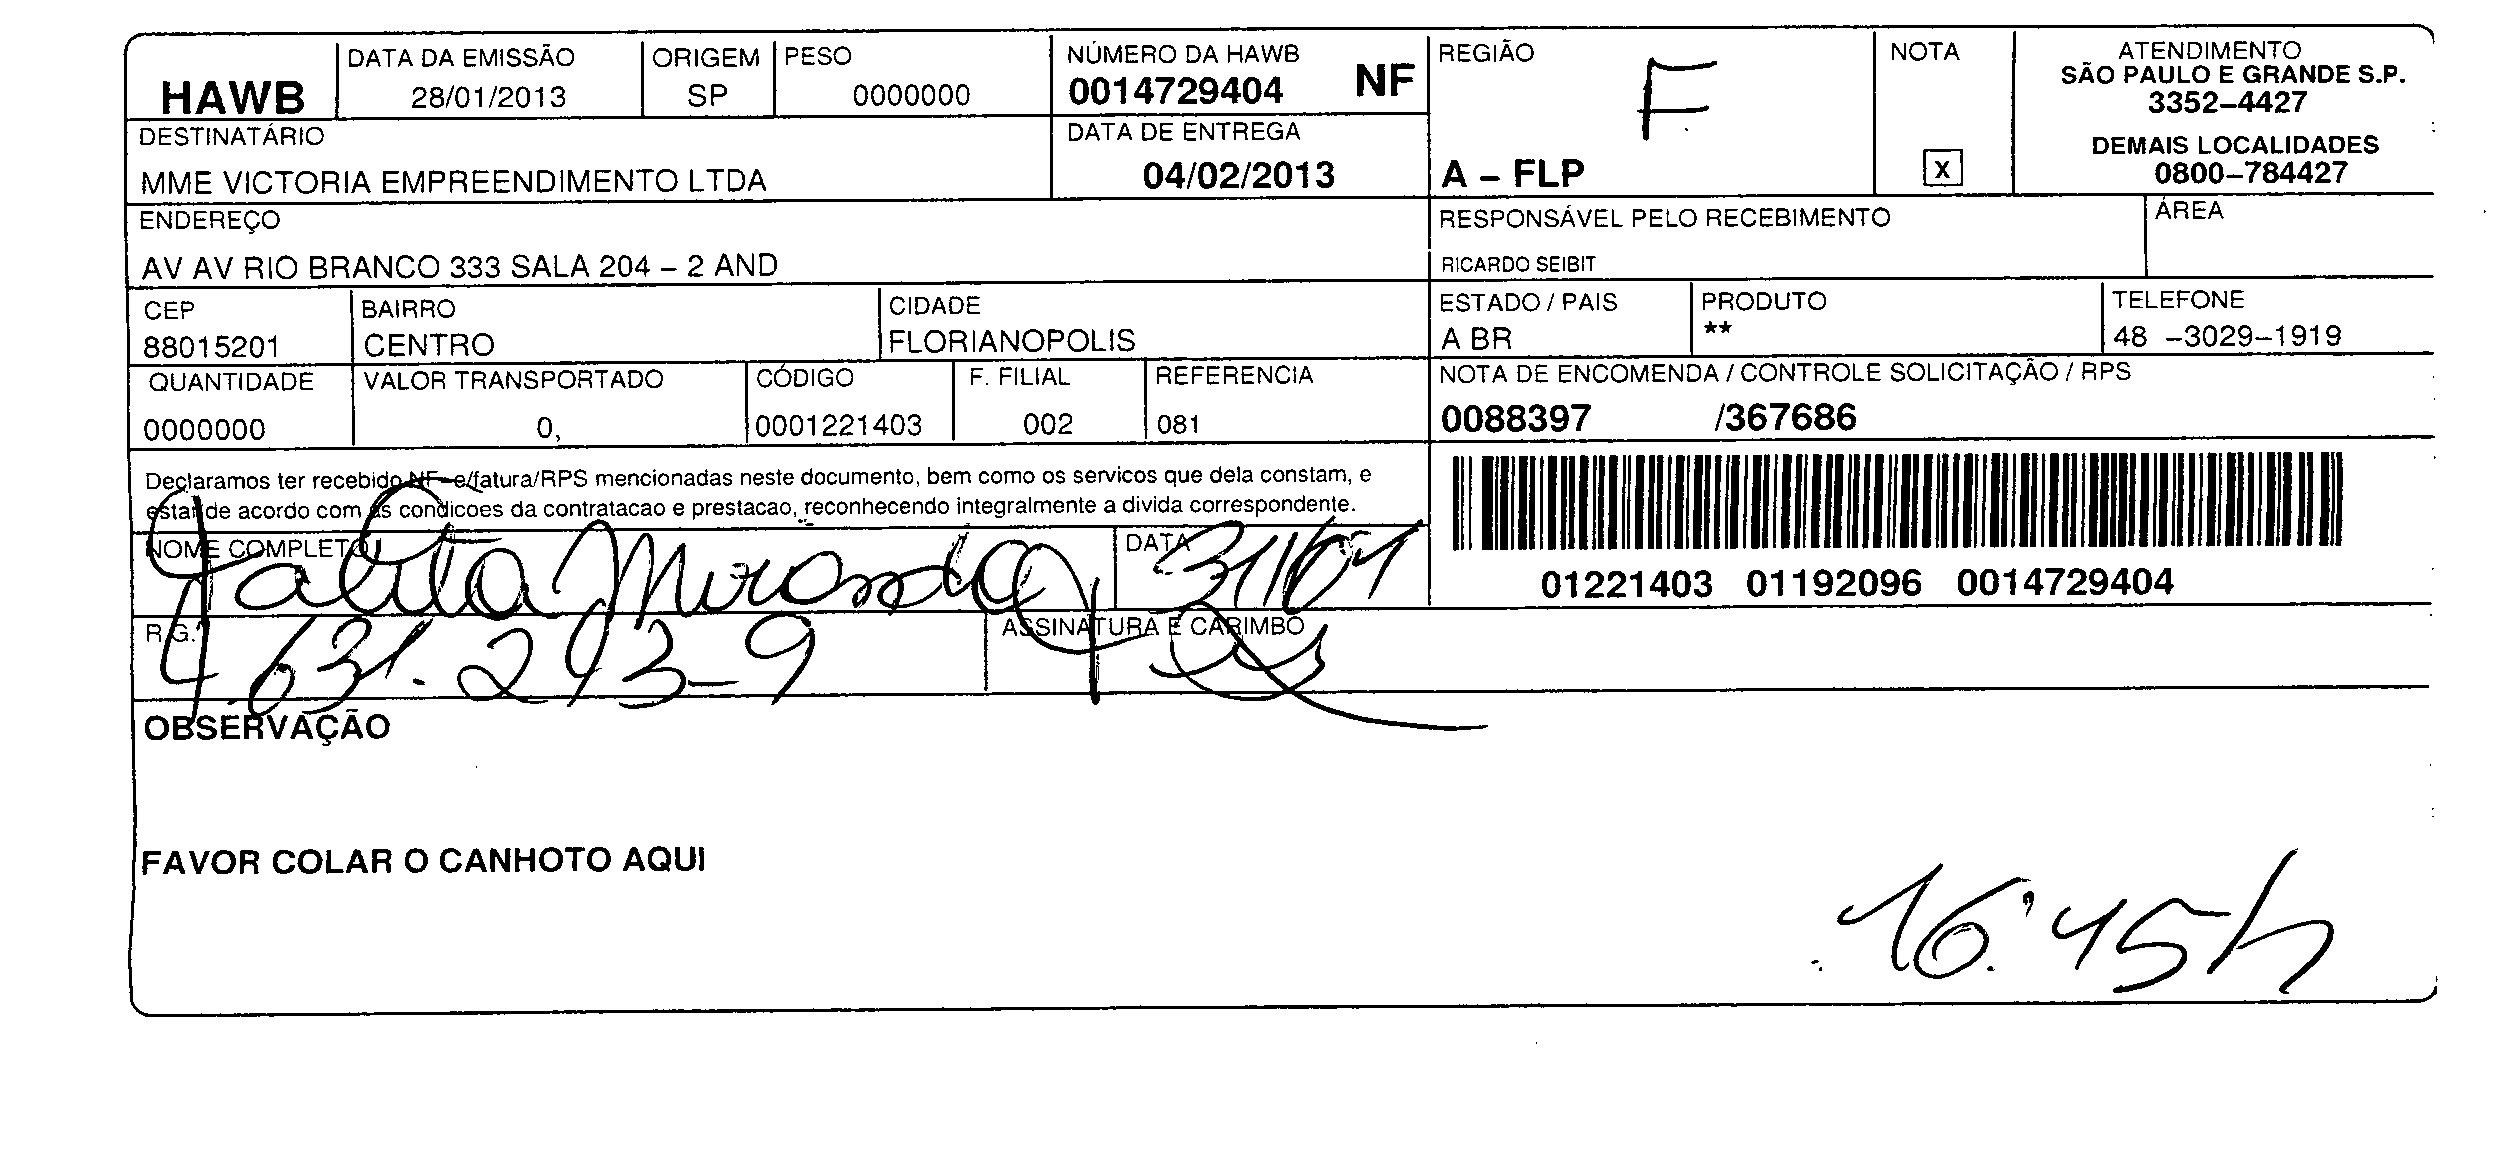 HAWB
DATA DA EMISSÃO
28/01/2013
ORIGEM
SP
PESO
0000000
NÚMERO DA HAWB
0014729404 NF
REGIÃO
F
A – FLP
NOTA
X
ATENDIMENTO
SÃO PAULO E GRANDE S.P.
3352–4427
DEMAIS LOCALIDADES
0800–784427
DESTINATÁRIO
MME VICTORIA EMPREENDIMENTO LTDA
DATA DE ENTREGA
04/02/2013
ENDEREÇO
AV AV RIO BRANCO 333 SALA 204 – 2 AND
RESPONSÁVEL PELO RECEBIMENTO
RICARDO SEIBIT
ÁREA
CEP
88015201
BAIRRO
CENTRO
CIDADE
FLORIANOPOLIS
ESTADO / PAIS
A BR
PRODUTO
**
TELEFONE
48 –3029–1919
QUANTIDADE
0000000
VALOR TRANSPORTADO
0,
CÓDIGO
0001221403
F. FILIAL
002
REFERENCIA
081
NOTA DE ENCOMENDA / CONTROLE SOLICITAÇÃO / RPS
0088397 /367686
Declaramos ter recebido NF–e/fatura/RPS mencionadas neste documento, bem como os servicos que dela constam, e
estar de acordo com as condicoes da contratacao e prestacao, reconhecendo integralmente a divida correspondente.
NOME COMPLETO
Talita Miranda
DATA
31/01
01221403 01192096 0014729404
R.G.
4.631.293-9
ASSINATURA E CARIMBO
OBSERVAÇÃO
FAVOR COLAR O CANHOTO AQUI
16:45h